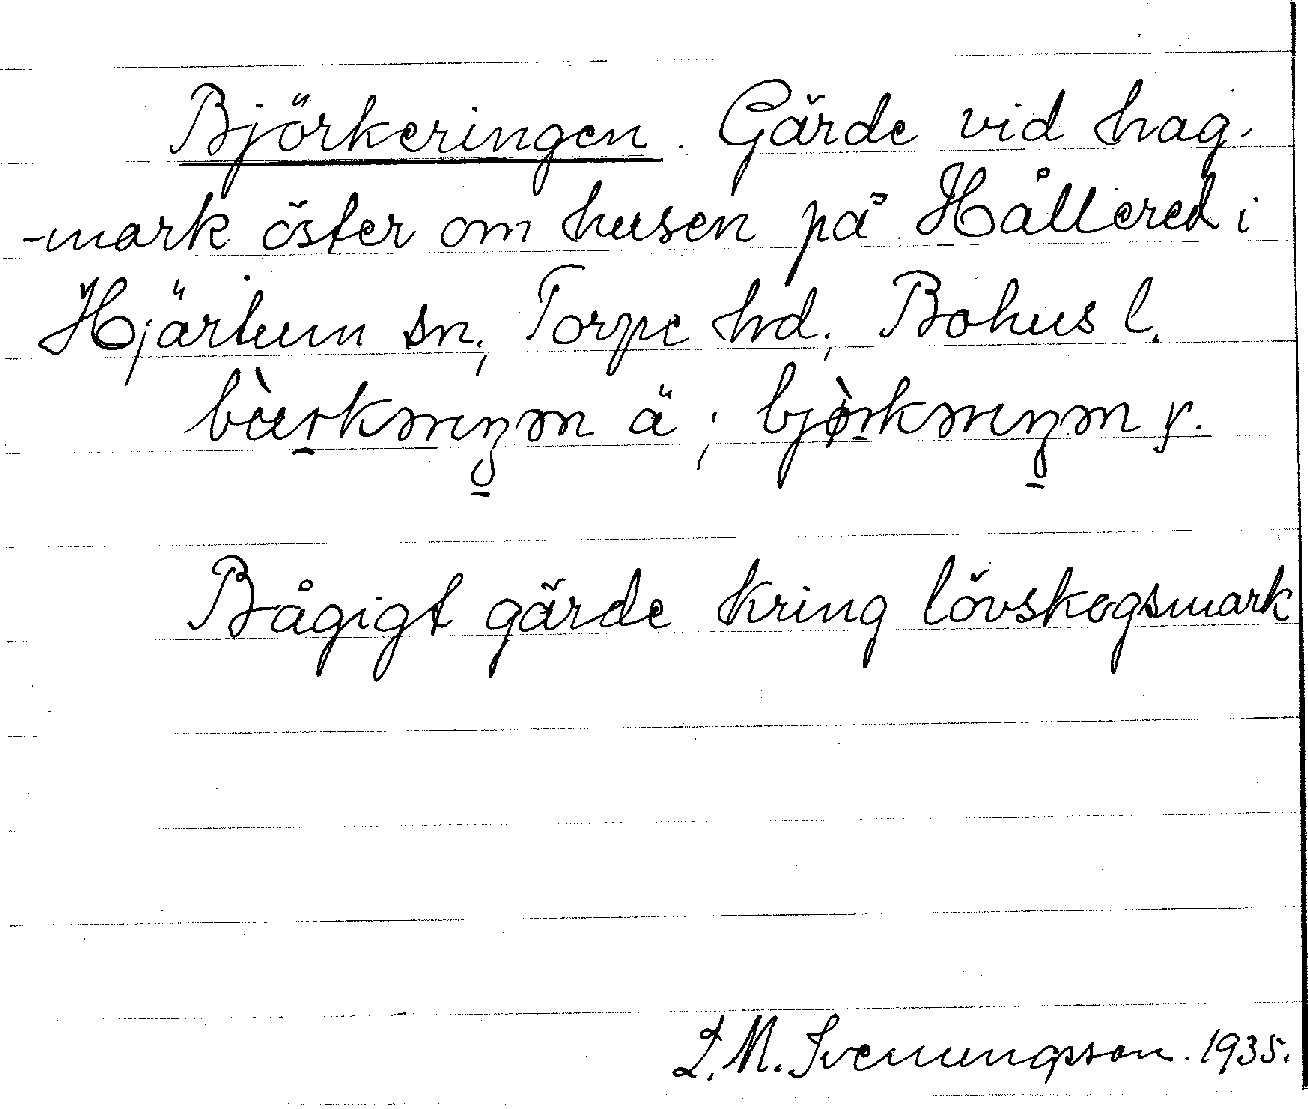 Björkeringen. Gärde vid hag-
-mark öster om husen på Hållered i
Hjärtum sn; Torpe hd; Bohus l.
ä ; y.
Bågigt gärde kring lövskogsmark
J. M. Svenungsson. 1935.